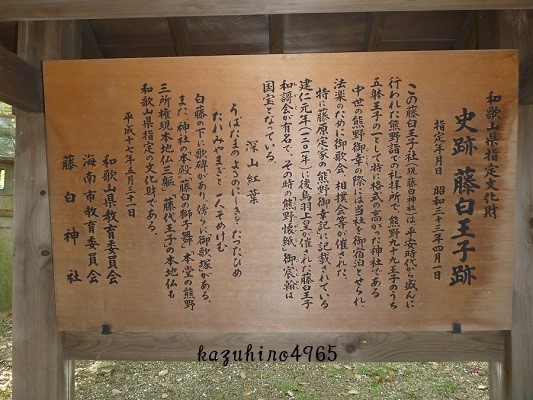 和歌山県指定文化財
史跡 藤白王子跡
指定年月日 昭和三十三年四月一日
この藤白王子社(現藤白神社)は、平安時代から盛んに
行われた熊野詣での礼拝所で、熊野九十九王子のうち
五躰王子の一として特に格式の高かった神社である
中世の熊野御幸の際には当社を御宿泊とせられ
法楽のために御歌会、相撲会等が催された。
特に藤原定家の熊野御幸記に記載されている
建仁元年(一二〇一年)に後鳥羽上皇が催された藤白王子
和謌会が有名で、その時の熊野懐紙(御宸翰は
国宝となっている。
深山紅葉
うばたまのよるのにしきをたつたひめ
たれみやまぎと一人そめけむ
白藤の下に歌碑があり、傍らに御歌塚がある。
また、神社の本殿、藤白の獅子舞、本堂の熊野
三所権現本地仏三躯、藤代王子の本地仏も
和歌山県指定の文化財である。
平成十七年五月三十一日
和歌山県教育委員会
海南市教育委員会
藤白神社
kazuhiro4965